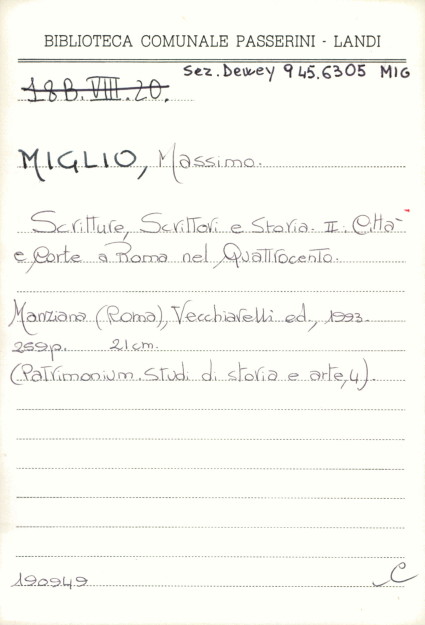 BIBLIOTECA COMUNALE PASSERINI - LANDI
Sez. Dewey 945.6305 MIG
18B.VIII.20.
MIGLIO, Massimo.
Scritture, Scrittori e Storia. II. Città
e Corte a Roma nel Quattrocento.
Manziana (Roma), Vecchiarelli ed., 1993.
259p. 21cm.
(Patrimonium. Studi di storia e arte,4).
190949 C